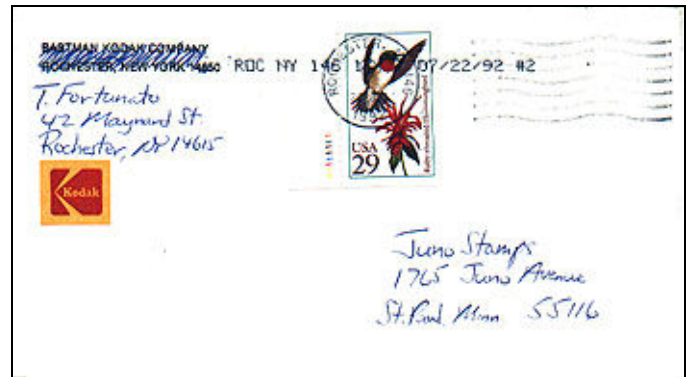 EASTMAN KODAK COMPANY
ROCHESTER, NEW YORK 14650
ROC NY 146 07/22/92 #2
T. Fortunato
42 Maynard St.
Rochester, NY 14615
Kodak
USA
29
Ruby-throated Hummingbird
Juno Stamps
1765 Juno Avenue
St. Paul Minn 55116